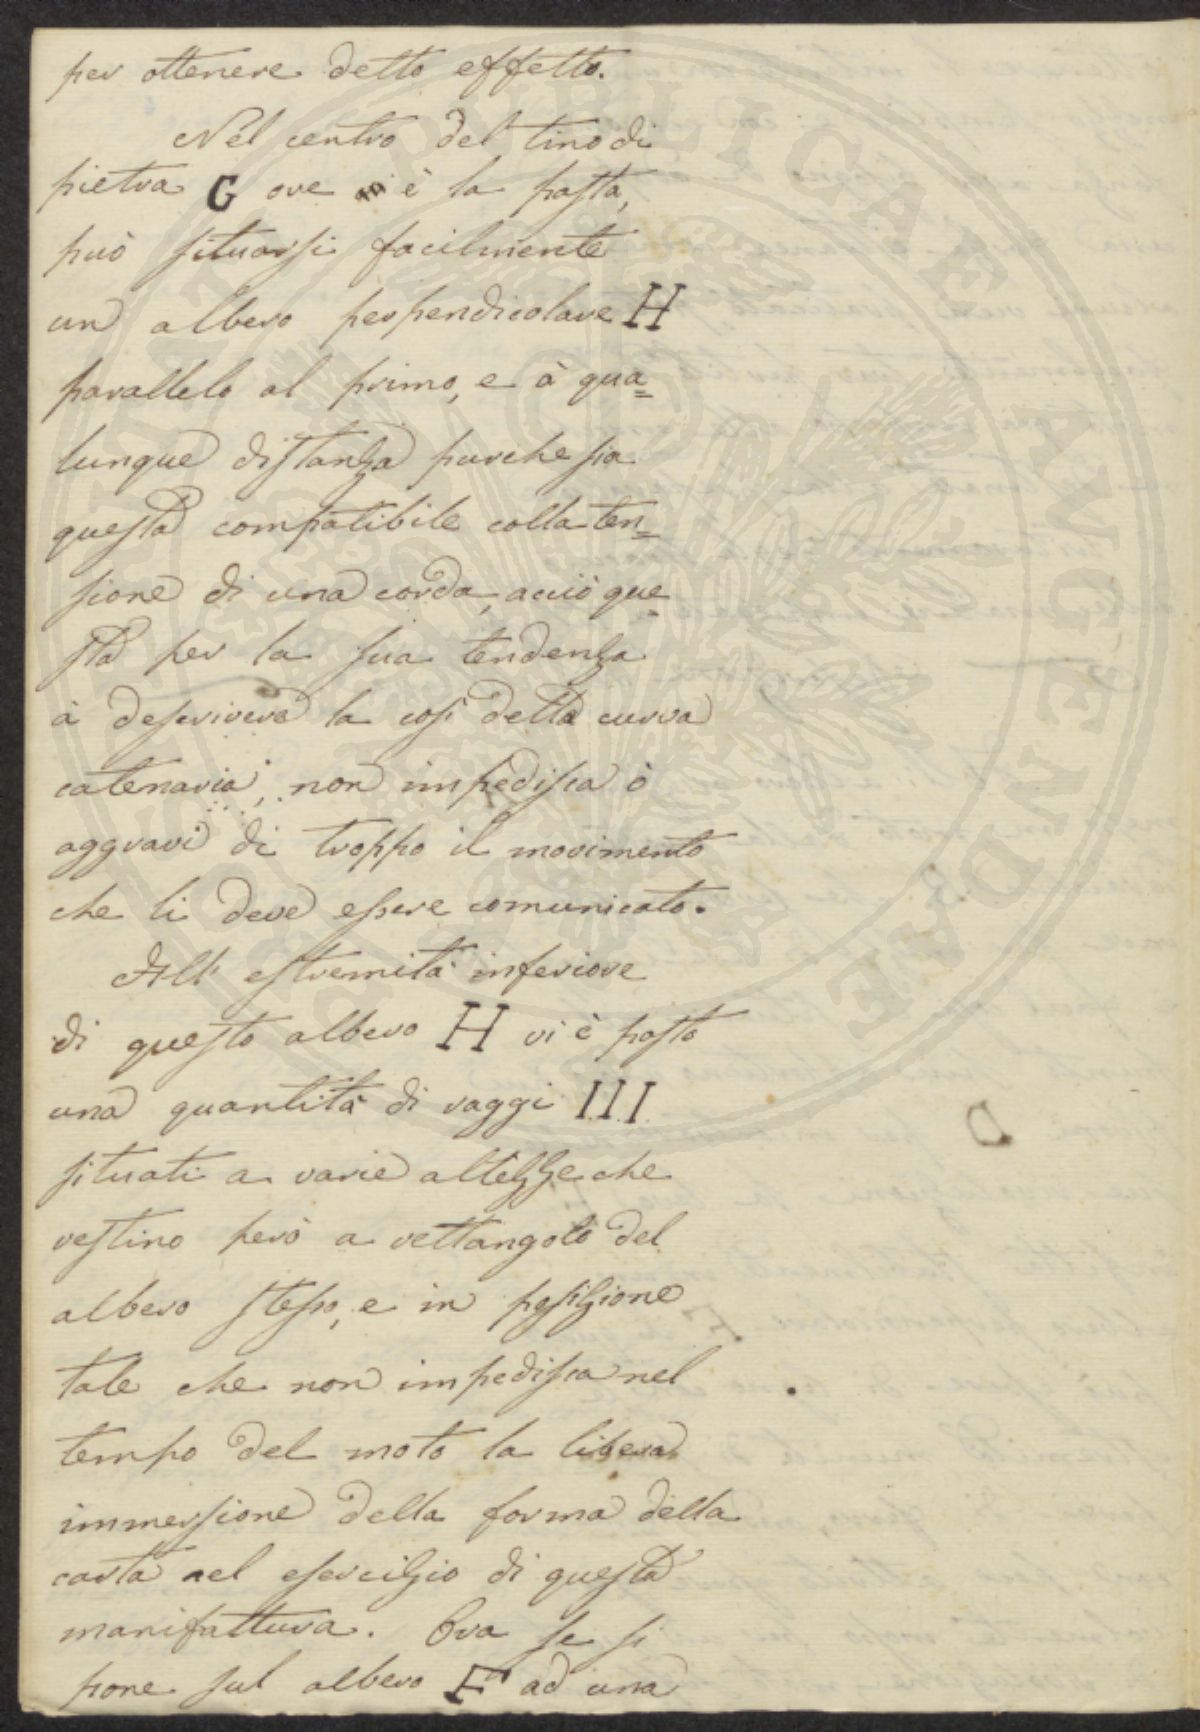 per ottenere detto effetto.
Nel centro del tino di
pietra G ove è la pasta,
può situarsi facilmente
un albero perpendicolare H
parallelo al primo, e à qua=
lunque distanza purche sia
questa compatibile colla ten=
sione di una corda, acciò que
sta per la sua tendenza
à descrivere la così detta curva
catenaria, non impedisca ò
aggravi di troppo il movimento
che li deve essere comunicato.
All' estremità inferiore
di questo albero H vi è posto
una quantità di raggi I.I.I.
situati a varie altezze che
restino però a rettangolo del
albero stesso, e in posizione
tale che non impedisca nel
tempo del moto la libera
immersione della forma della
carta nel esercizio di questa
manifattura. Ora se si
pone sul albero F ad una
PUBLICAE AVGENDAE